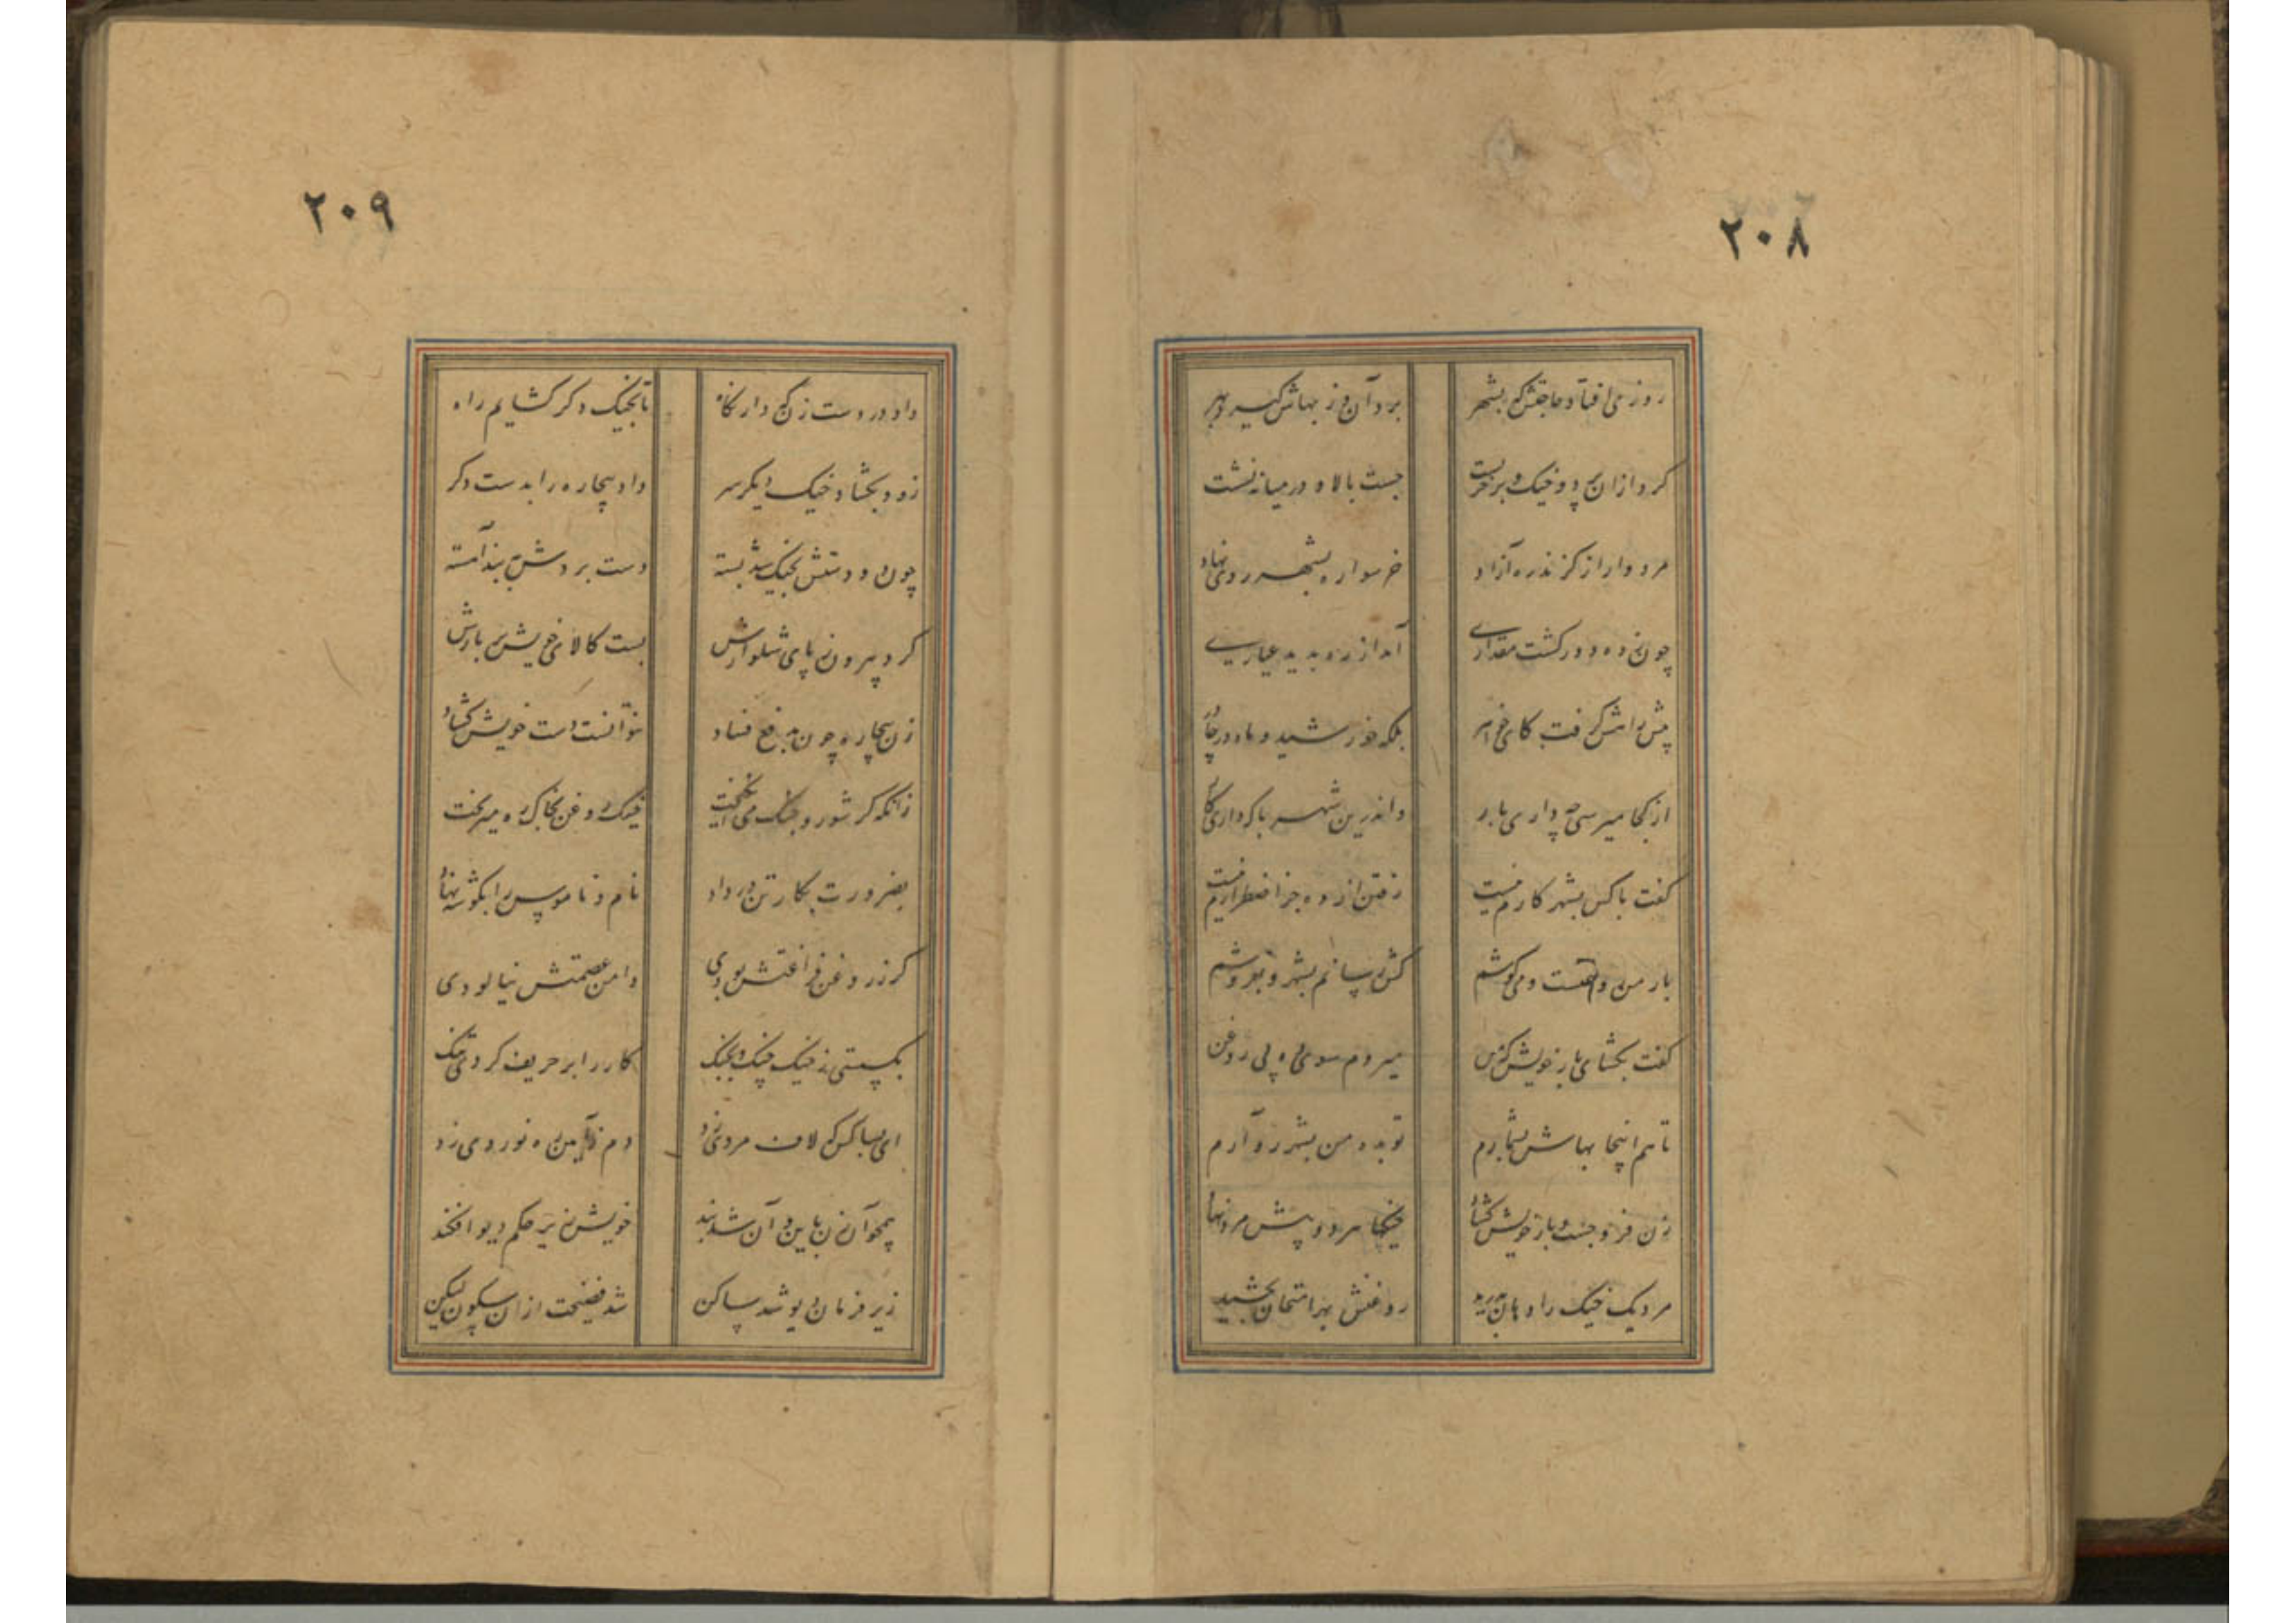 ۲۰۸
روزی افتاد حاجتش که بشهر برد آن و ز بهاش کیرد بهر
کرد ازان پر دو خیک و بر خر بست جست بالا و در میانه نشست
مرد وار از کزند ره آزاد خر سواره بشهر روی نهاد
چون ز ده دور کشت مقداری آمد از ره پدید عیاری
پیش راهش کرفت کای خواهر بلکه خورشید و ماه در چادر
از کجا میرسی چه داری بار واندرین شهر با که داری کار
کفت با کس بشهر کارم نیست رفتن از ده جز اضطرارم نیست
بار من روغنست و می کوشم کش رسانم بشهر و بفروشم
کفت بکشای بار خویش که من میروم سوی ده پی روغن
تا هم اینجا بهاش بشمارم تو بده من بشهر رو آرم
زن فرو جست و بار خویش کشاد خیکها هر دو پیش مرد نهاد
مرد یک خیک را دهان بدرید روغنش بهر امتحان بچشید
۲۰۹
داد در دست زن که دار نکاه تا بخیک دکر کشایم راه
زود بکشاد خیک دیکر سر داد بیچاره را بدست دکر
چون دو دستش بخیک شد بسته دست بردش به بند آهسته
کرد بیرون ز پای شلوارش بست کالای خویش بر بارش
زن بیچاره چون بدفع فساد نتوانست دست خویش کشاد
زانکه کر شور و جنک می انکیخت خیک روغن بخاک ره میریخت
بضرورت بکار تن در داد نام و ناموس را بکوشه نهاد
کر ز روغن فراغتش بودی دامن عصمتش نیالودی
نکسستی ز خیک چنک بجنک کار را بر حریف کردی تنک
ای بسا کس که لاف مردی زد دم ز آیین ره نوردی زد
همچو آن زن باین و آن شد بند خویش را زیر حکم دیو افکند
زیر فرمان دیو شد ساکن شد فضیحت ازان سکون لیکن